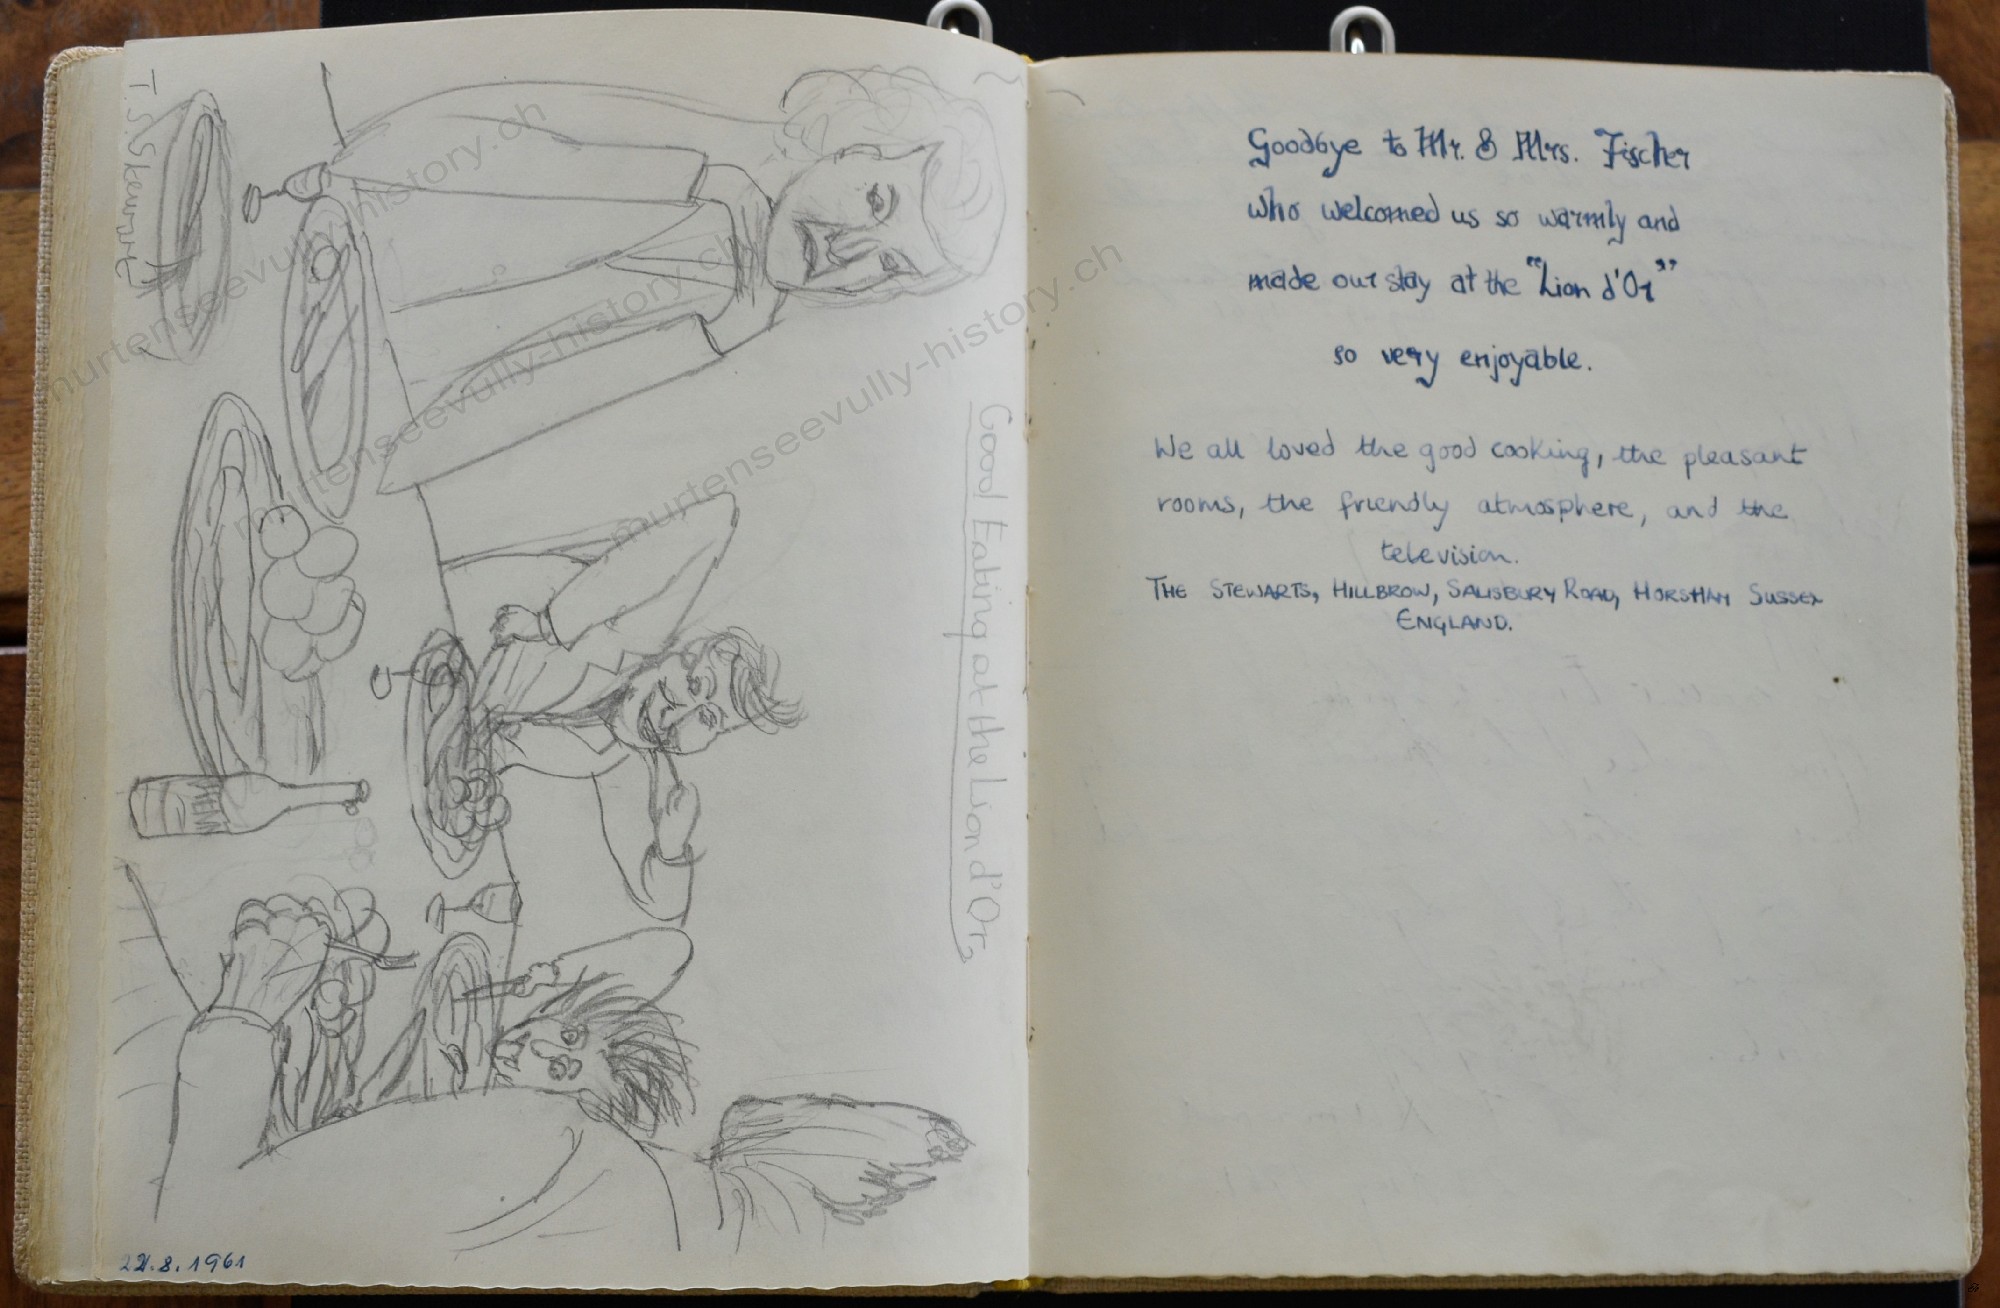 T. S. Stewart
Good Eating at the Lion d'Or
22.8.1961
Goodbye to Mr. & Mrs. Fischer
who welcomed us so warmly and
made our stay at the "Lion d'Or"
so very enjoyable.
We all loved the good cooking, the pleasant
rooms, the friendly atmosphere, and the
television.
THE STEWARTS, HILLBROW, SALISBURY ROAD, HORSHAM SUSSEX
ENGLAND.
murtenseevully-history.ch
murtenseevully-history.ch
murtenseevully-history.ch